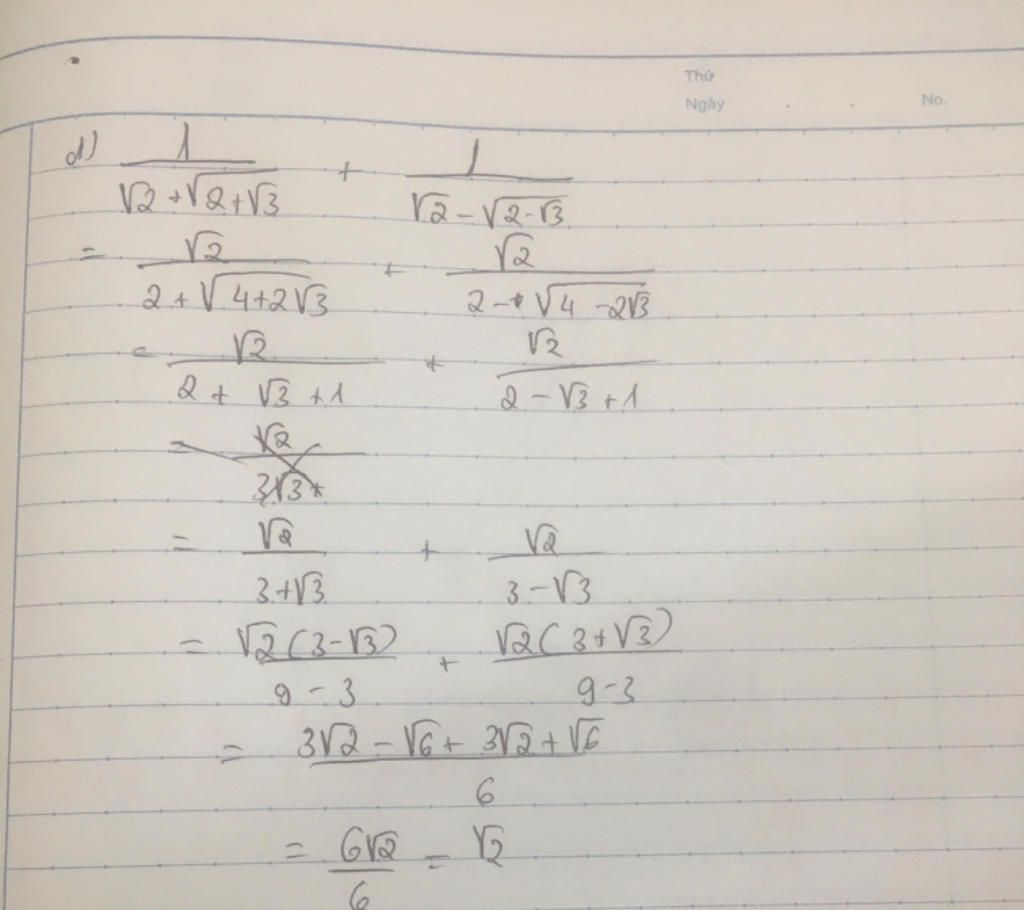 Thứ
Ngày . . No.
d) 1/(√2+√(2+√3)) + 1/(√2-√(2-√3))
= √2/(2+√(4+2√3)) + √2/(2-√(4-2√3))
= √2/(2+√3+1) + √2/(2-√3+1)
= √2/(3+√3) + √2/(3-√3)
= √2(3-√3)/(9-3) + √2(3+√3)/(9-3)
= (3√2-√6+3√2+√6)/6
= 6√2/6 = √2